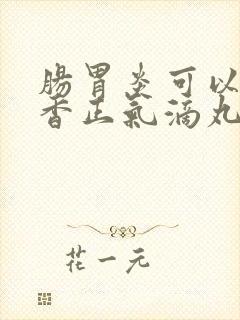 腸胃炎可以
香正氣滴丸
花一元